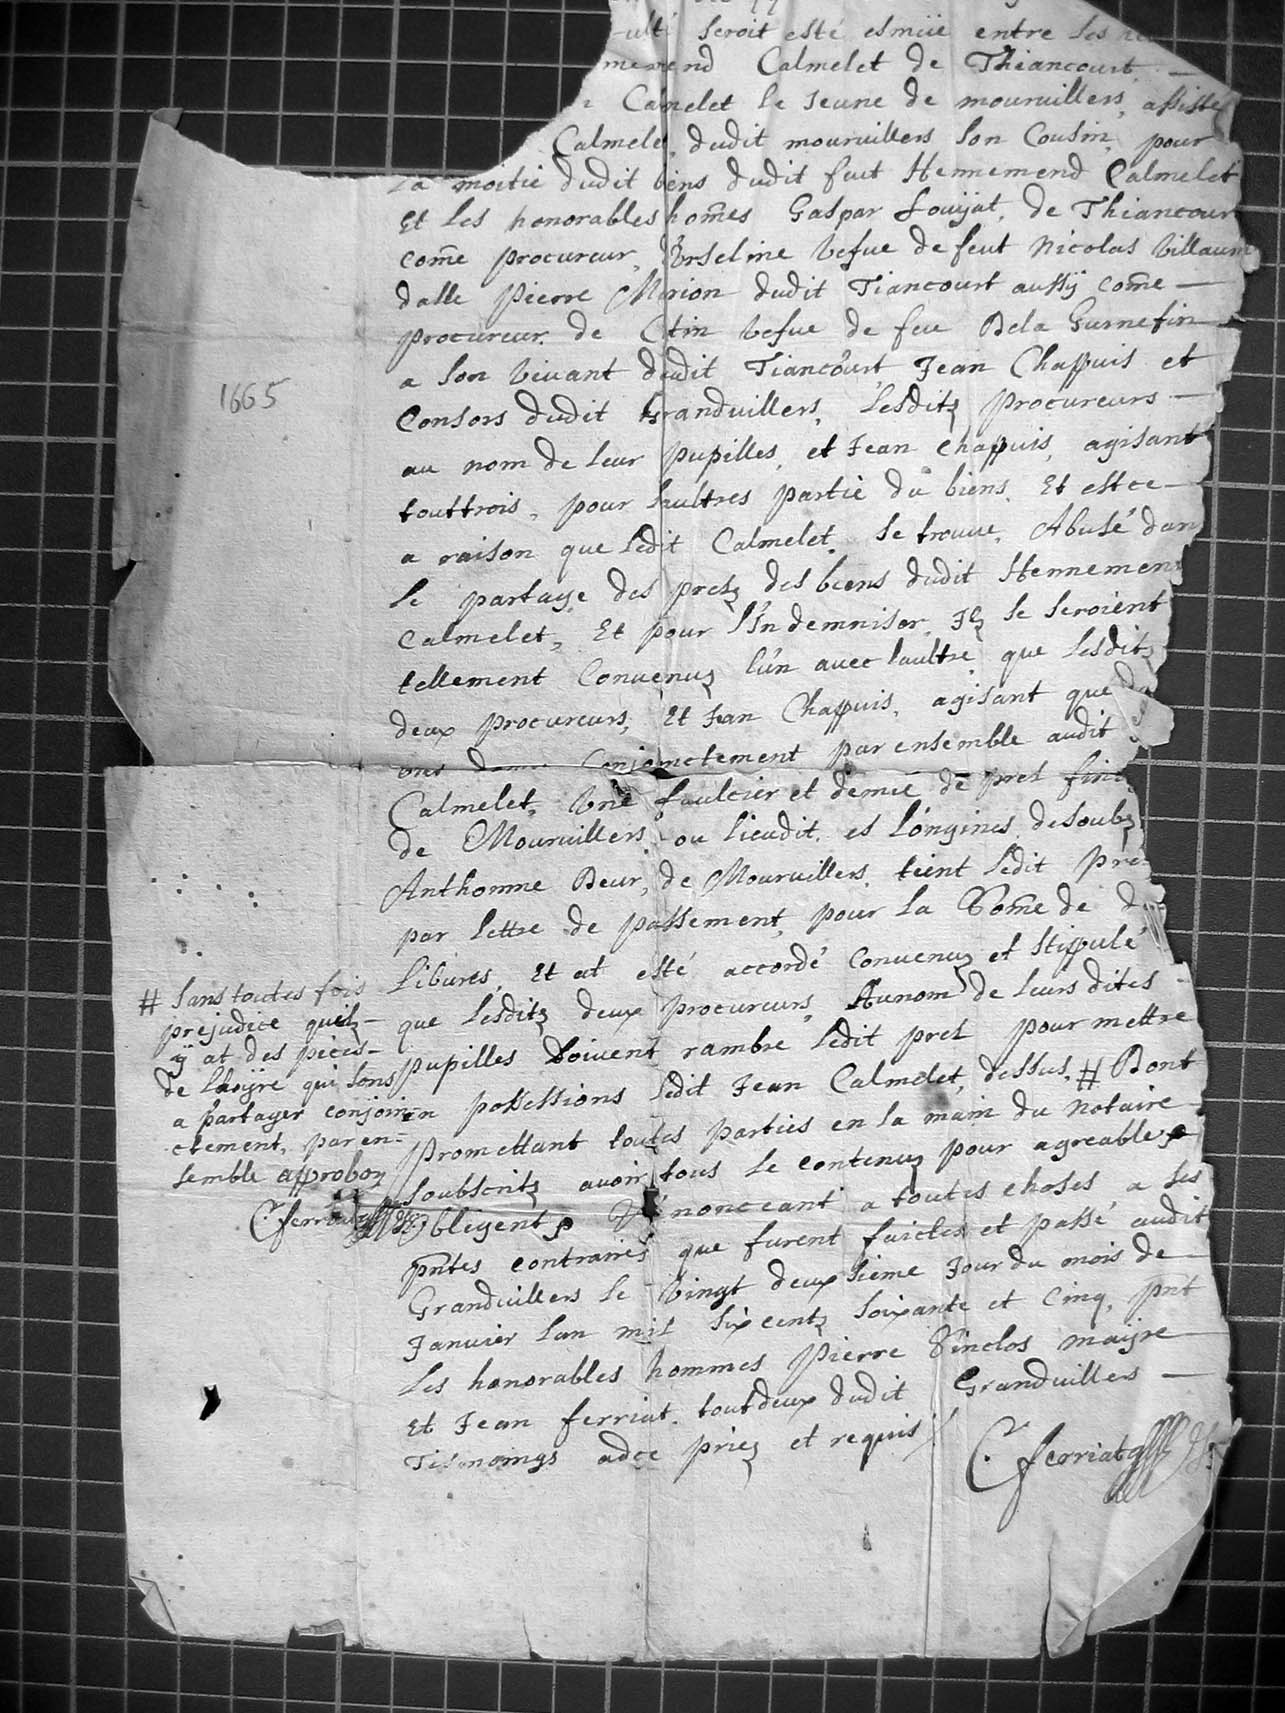 -ulté seroit esté esmüe entre les
memend Calmelet de Thiancourt —
Calmelet le Jeune de mouruillers, assisté
Calmelet, dudit mouruillers son Cousin, pour
La moitie dudit biens dudit feut Hennemend Calmelet
Et les honorables hom̃es Gaspar Louÿat, de Thiancour
com̃e procureur, Vrseline vefue de feut Nicolas Villaum
dalle Pierre Mirion dudit Tiancourt aussÿ com̃e —
procureur de Ctin vefue de feu Bela Gurnefin
a son viuant dudit Tiancourt Jean Chappuis et
Consors dudit Granduillers, Lesditz procureurs —
au nom de leur pupilles, et Jean Chappuis, agisant
touttrois, pour laultres partie du biens. Et est ce —
a raison que ledit Calmelet, se trouue, Abusé dan
le partage des pretz des biens dudit Hennemen
Calmelet, Et pour l'Indemniser, Ilz se seroient
tellement Conuenuz l'ún auec laultre, que lesditz
deux procureurs, Et Jean Chappuis, agisant que
ons Conjoinctement par ensemble audit
Calmelet, Vne faulcier et demie de pret fina
de Mouruillers ou lieudit, es Longines desoubz
Anthonne Beur, de Mouruillers, teint ledit pre
par lettre de passement, pour la Som̃e de
Libures, Et at esté accordé Conuenuz et stippulé
que lesditz deux procureurs, Aunom de leurs dites —
pupilles Doivent rambre ledit pret pour mettre
en possessions ledit Jean Calmelet, dessus, # Dont
promettant toutes parties en la main du notaire —
soubscritz auoir tous le contenuz pour agreable,
Obligent, Rénonceant a toutes choses a ses
pñtes contraires que furent faictes et passé audit
Granduillers le Vingt deuxsieme Jour du mois de —
Januier lan mil sixcentz soixante et Cinq, pnt
Les honorables hommes Pierre Vinclos maijre
Et Jean ferriat, toutdeux dudit Granduillers —
Tesmoings adce priez et requis
C. ferriat
1665
# Sans toutes fois
prejudice quilz —
ÿ at des pieces —
de qui sons
a partager conjoin-
ctement, par en=
semble approbon
C. ferriat